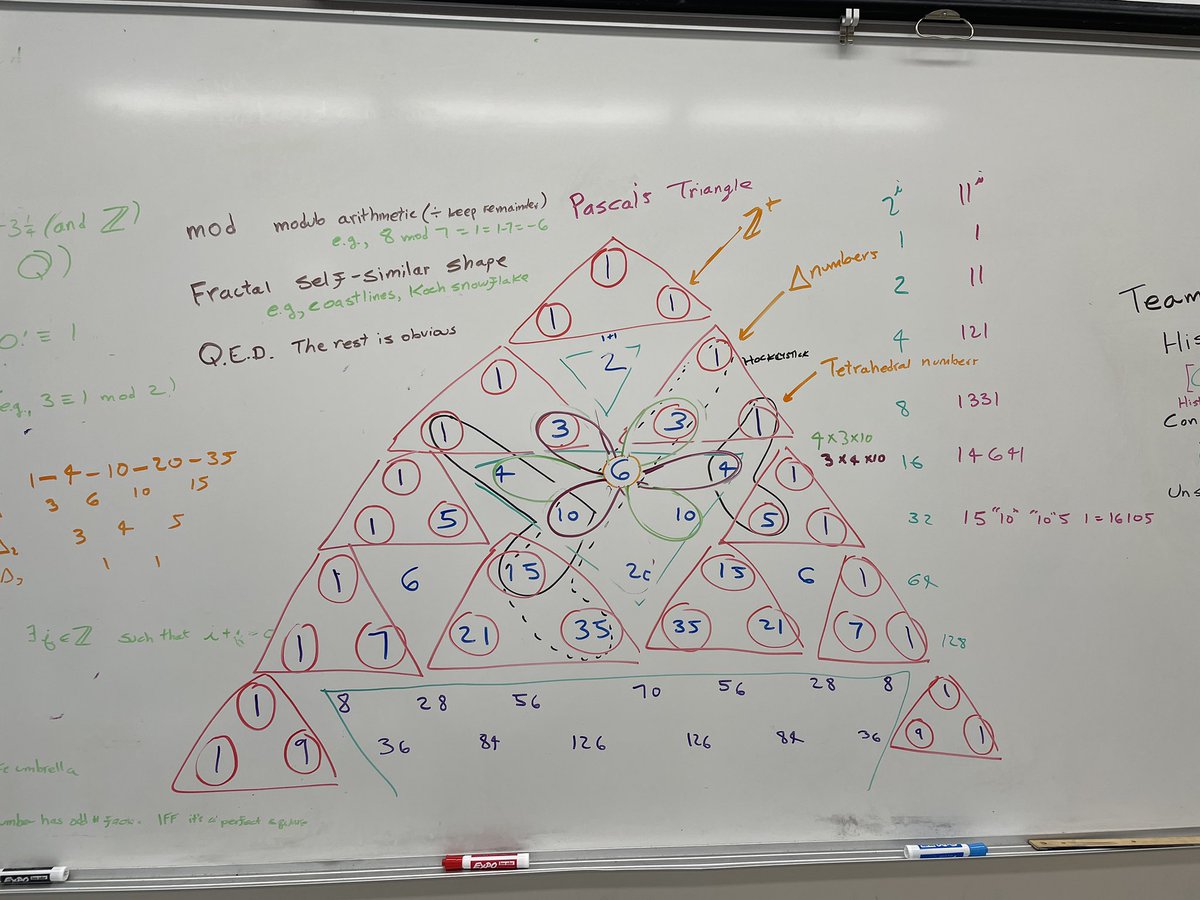 -3 1/4 (and ℤ)
ℚ)
0! ≡ 1
e.g., 3 ≡ 1 mod 2)
1-4-10-20-35
3 6 10 15
3 4 5
1 1
∃ j ∈ ℤ such that
umbrella
has odd # IFF it's a perfect square
mod modulo arithmetic (÷ keep remainder)
e.g., 8 mod 7 = 1 = 1-7 = -6
Fractal self-similar shape
e.g., coastlines, Koch snowflake
Q.E.D. The rest is obvious
Pascal's Triangle
ℤ+
Δ numbers
Hockeystick
Tetrahedral numbers
1
1 1
1+1
1 2 1
1 3 3 1
1 4 6 4 1
1 5 10 10 5 1
1 6 15 20 15 6 1
1 7 21 35 35 21 7 1
1 8 28 56 70 56 28 8 1
1 9 36 84 126 126 84 36 9 1
4×3×10
3×4×10
2^i 11^i
1 1
2 11
4 121
8 1331
16 14641
32 15 "10" "10" 5 1 = 16105
64
128
Team
His
Hist
Con
Uns
EXPO
EXPO